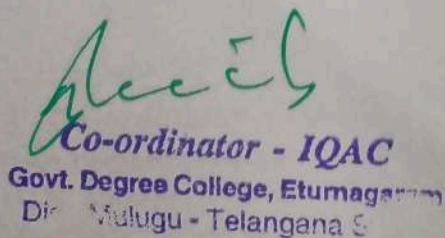 Co-ordinator - IQAC
Govt. Degree College, Eturnagaram
Mulugu - Telangana